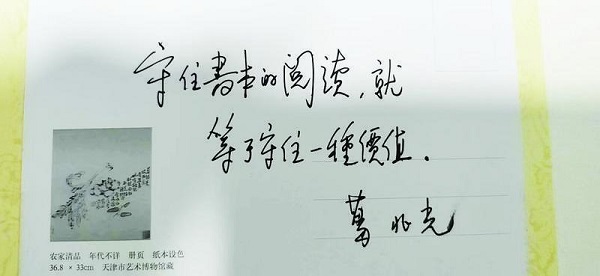 守住書本的阅读,就
等于守住一種價值.
葛兆光
农家清品 年代不详 册页 纸本设色
36.8 × 33cm 天津市艺术博物馆藏